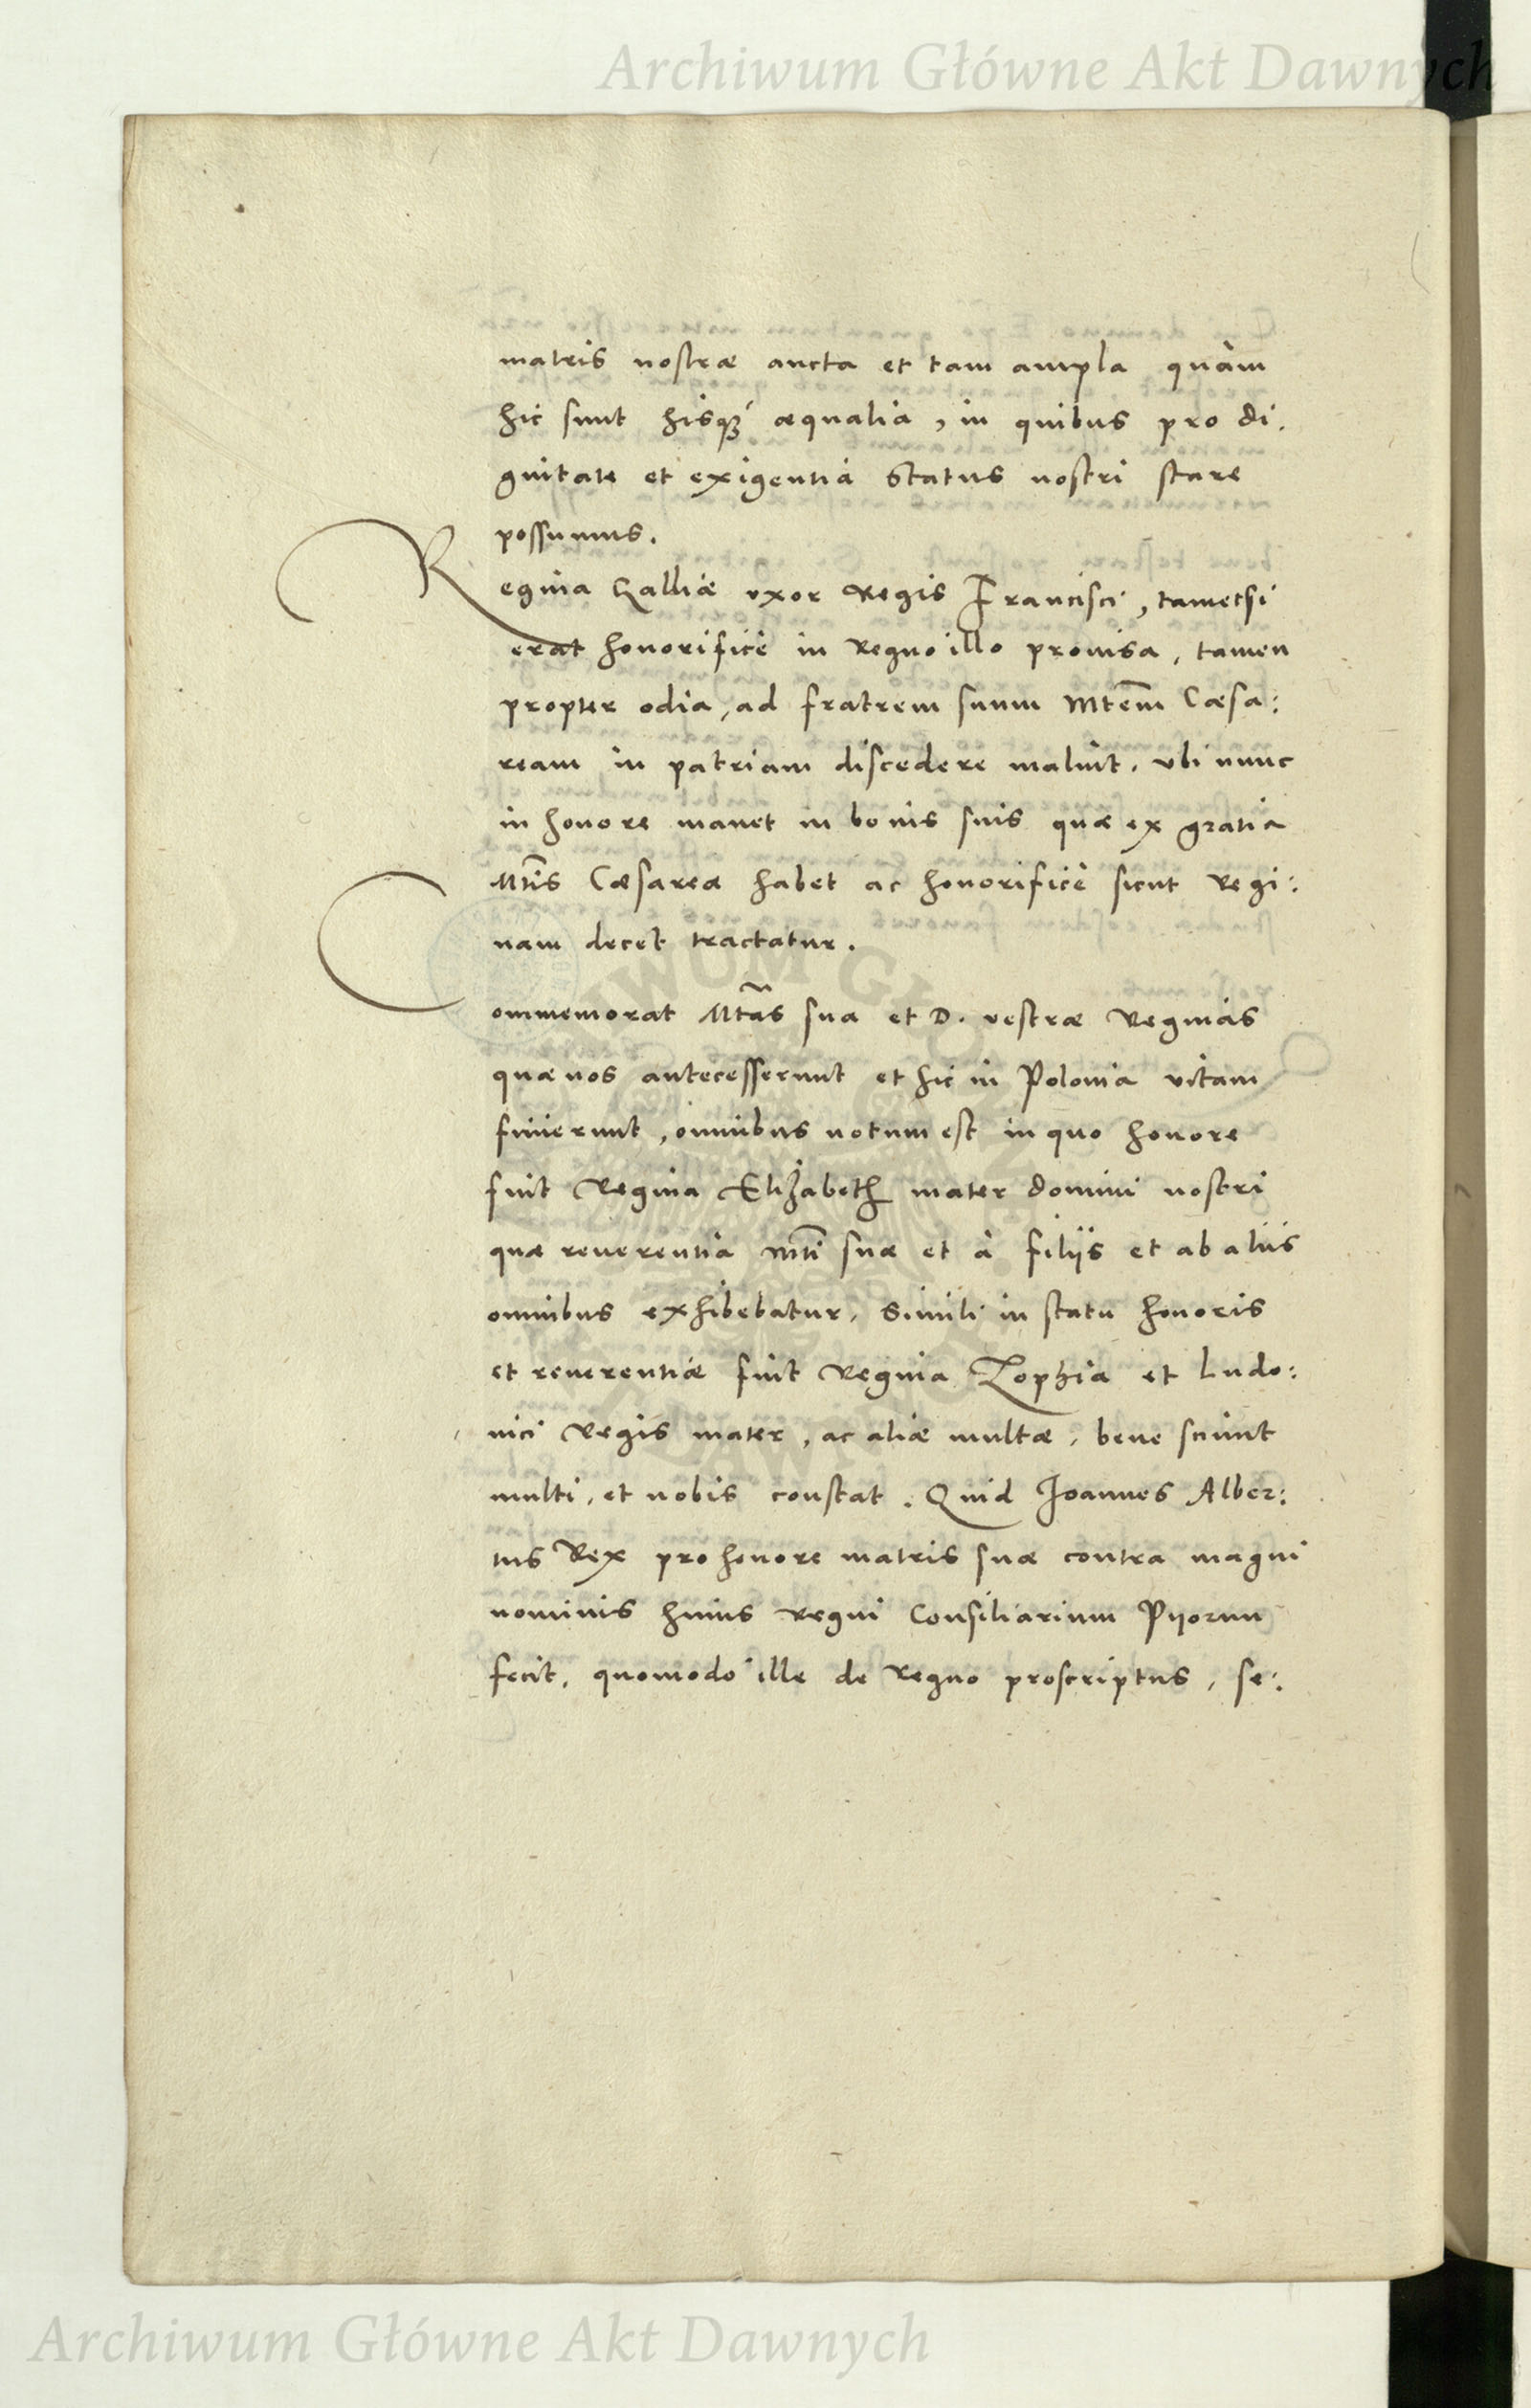 Archiwum Główne Akt Dawnych
matris nostræ aucta et tam ampla quàm
hic sunt hisqꝫ́ æqualia, in quibus pro di.
gnitate et exigentia Status nostri stare
possumus.
Regina Galliæ vxor Regis Francisci, tametsi
erat honorificè in Regno illo prouisa, tamen
propter odia, ad fratrem suum Mtēm Cæsa:
ream in patriam discedere maluit. vbi nunc
in honore manet in bonis suis quæ ex gratia
Mtīs Cæsareæ habet ac honorificè sicut Regi:
nam decet tractatur.
Commemorat Mtās sua et D. vestræ Reginas
quæ nos antecesserunt et hic in Polonia vitam
finierunt, omnibus notum est in quo honore
fuit Regina Elizabeth mater domini nostri
quæ reuerentia Mtī suæ et à filijs et ab alijs
omnibus exhibebatur. Simili in statu honoris
et reuerentiæ fuit Regina Zophia et Ludo:
uici Regis mater, ac aliæ multæ, bene sciunt
multi, et nobis constat. Quid Joannes Alber:
tus Rex pro honore matris suæ contra magni
nominis huius Regni Consiliarium Pijorun
fecit, quomodo ille de Regno proscriptus, se:
Archiwum Główne Akt Dawnych